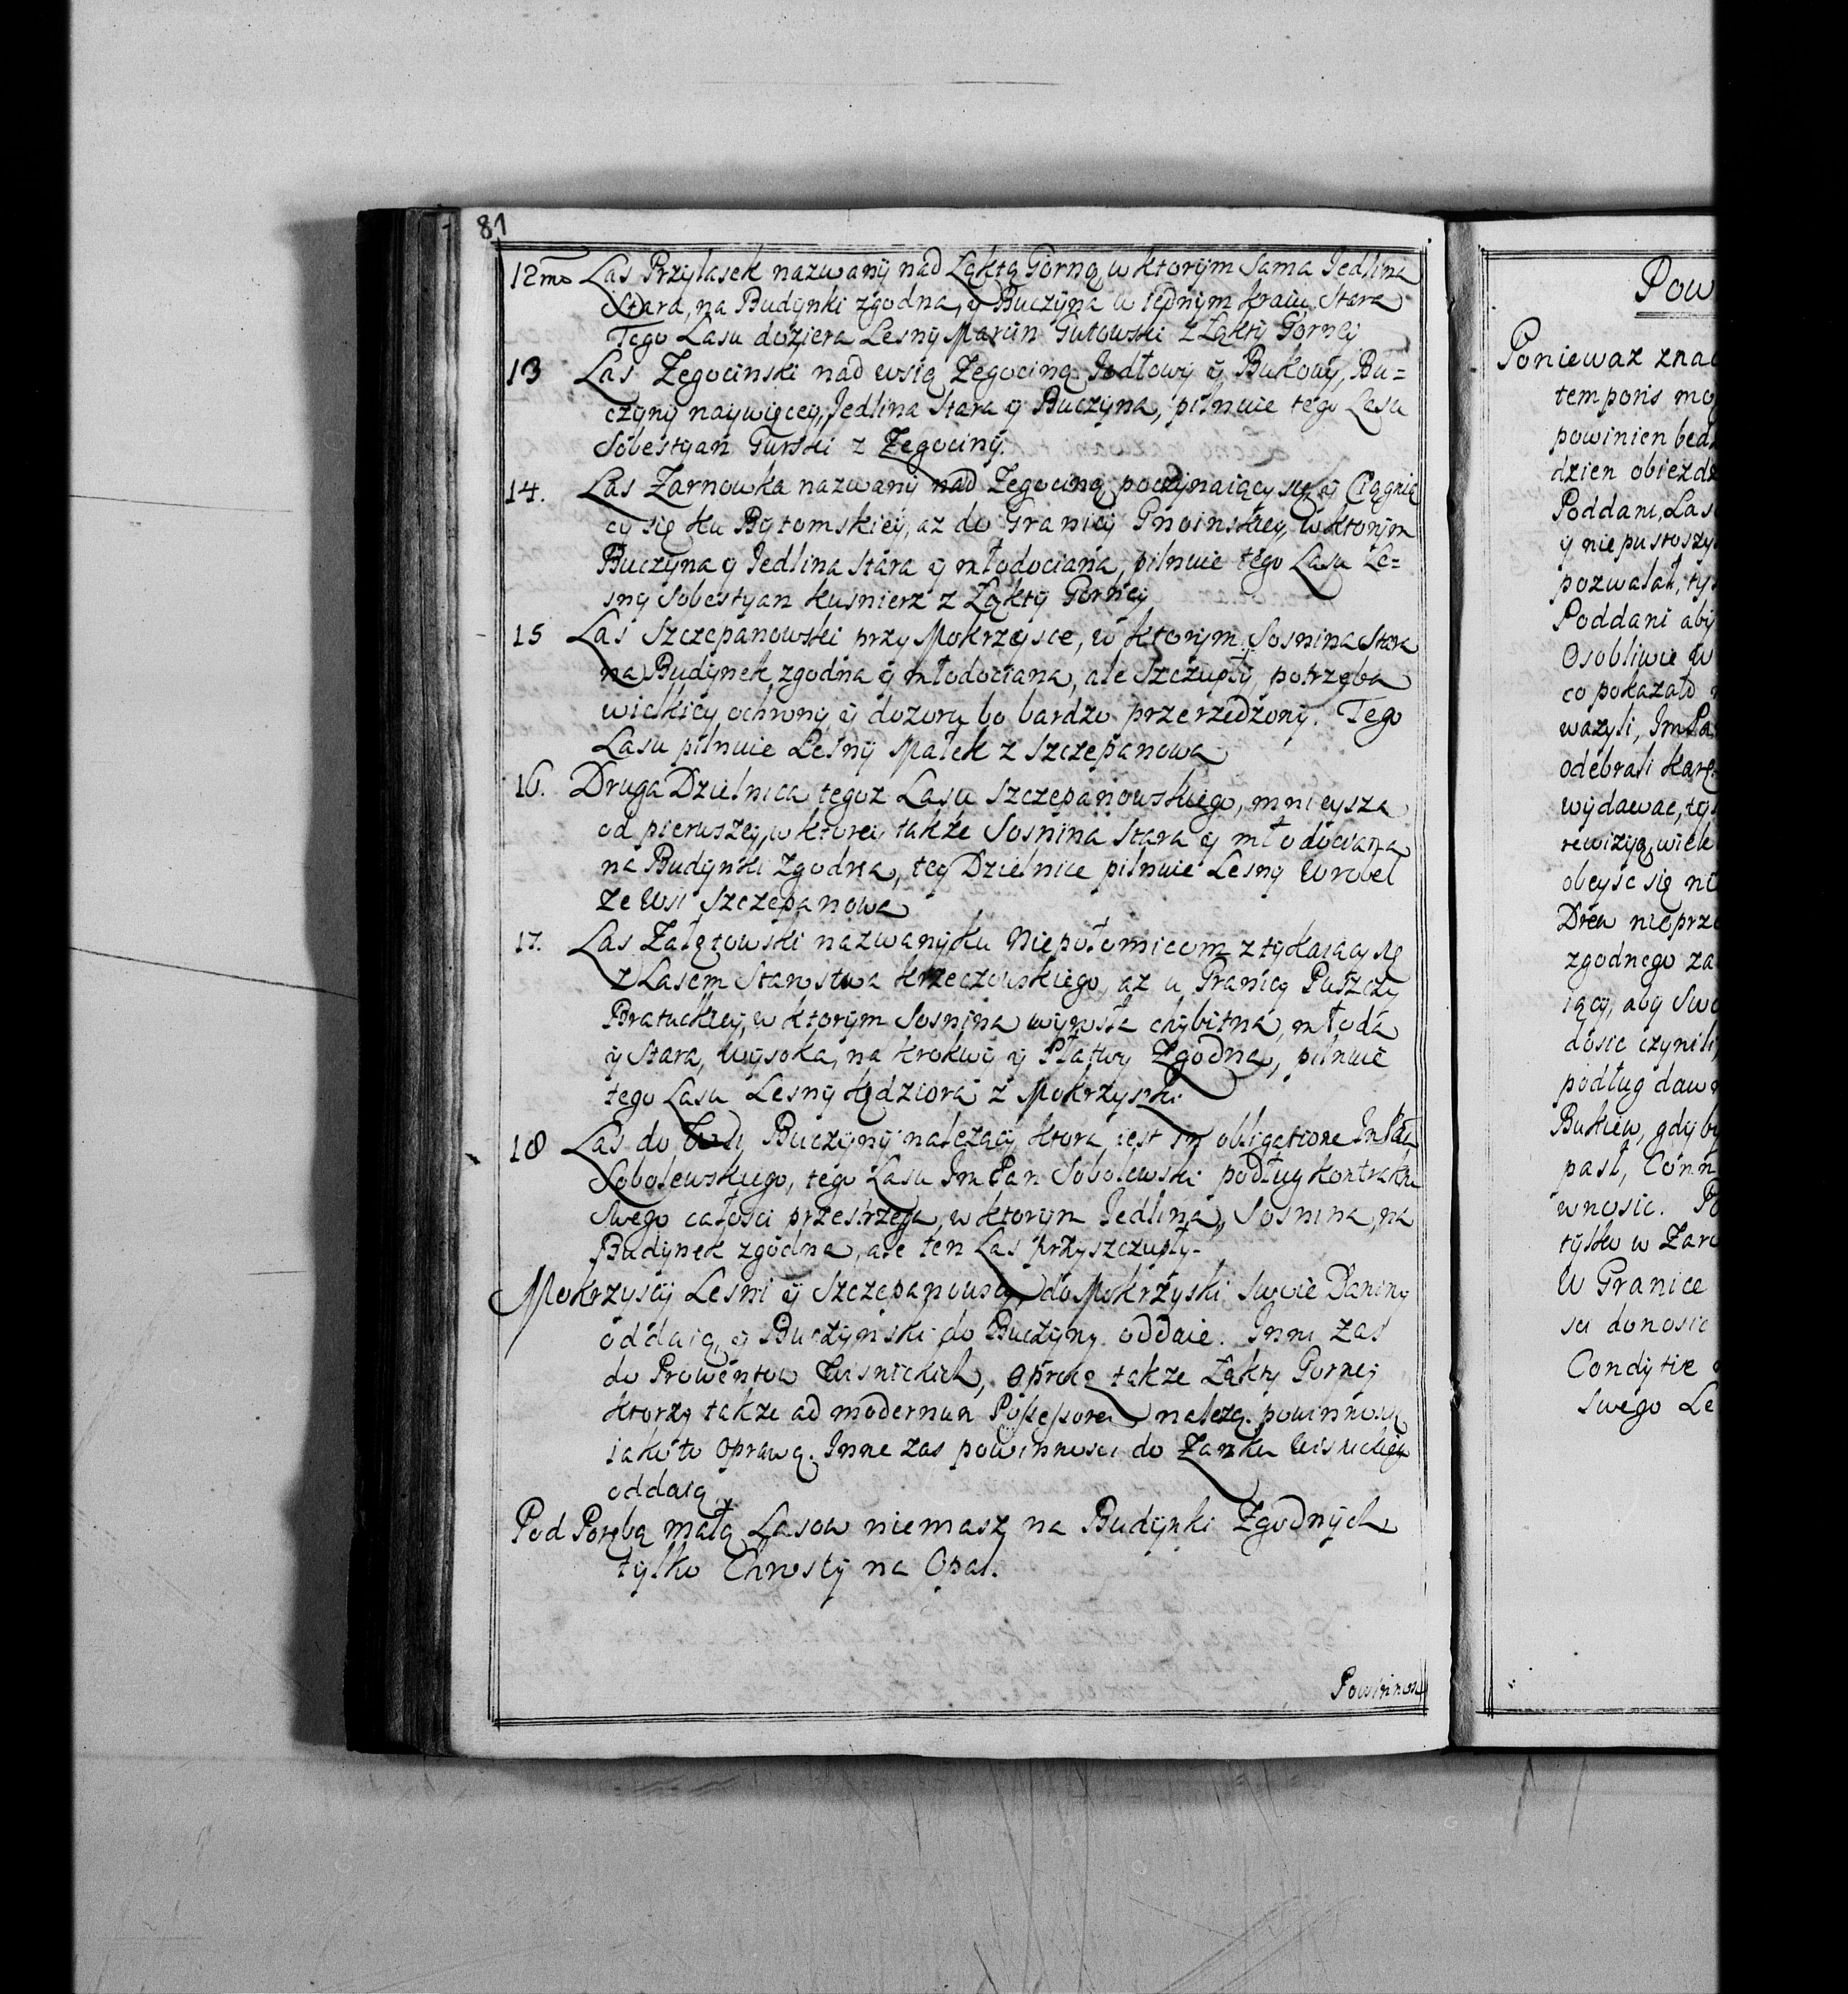 81
12mo Las Przylasek nazwany nad Łąktą Gorną, w ktorym Sama Jedlina
Stara, na Budynki zgodna, y Buczyna w iednym kraiu Stara
Tego Lasu doziera Lesny Marcin Gutowski z Łąkty Gorney
13 Las Zegocinski nad wsią Zegociną Jodłowy y Bukowy, Bu=
czyny naywięcey, Jedlina Stara y Buczyna, pilnuie tego Lasu
Sobestyan Gurski z Zegociny.
14. Las Zarnowka nazwany nad Zegociną poczynaiący się y Ciągnią
cy się ku Bytomskiey, az do Granicy Gnoinskiey, w ktorym
Buczyna y Jedlina stara y młodociana, pilnuie tego Lasu Le=
sny Sobestyan Kusnierz z Łąkty Gorney
15 Las Szczepanowski przy Mokrzysce, w ktorym Sosnina Stara
na Budynek zgodna y młodociana, ale Szczupły, potrzeba
wielkiey ochrony y dozoru bo bardzo przerzedzony. Tego
Lasu pilnuie Lesny Małek z Szczepanowa
16. Druga Dzielnica tegoz Lasu Szczepanowskiego, mnieysza
od pierwszey, w ktorey takze Sosnina Stara y młodociana
na Budynki zgodna, tey Dzielnice pilnuie Lesny Wrobel
ze Wsi Szczepanowa
17. Las Zatętowski nazwany ku Niepołomicom ztykaiący się
z Lasem Starostwa Krzeczowskiego, az u Granicy Puszczy
Bratuckiey, w ktorym Sosnina wyrosła chybitna, młoda
y Stara, wysoka, na krokwy y Płatwy Zgodna, pilnuie
tego Lasu Lesny Kędziora z Mokrzyski
18 Las do Wsi Buczyny należący ktora iest in obligatione
Sobolewskiego, tego Lasu Jm Pan Sobolewski podług kontraktu
Swego całosci przestrzega, w ktorym Jedlina, Sosnina, na
Budynek zgodna, ale ten Las przyszczupły.
Mokrzyscy Lesni y Szczepanowscy do Mokrzyski Swoie Daniny
oddaią, y Buczynski do Buczyny oddaie. Inni zas
do Prowentow Wisnickich, oprocz takze Łąkty Gorney
ktorzy takze ad modernum Possessorem należą. powinnością
iako to oprawą. Inne zas powinnosci do Zamku Wisnickiego
oddaią.
Pod Porębą małą Lasow niemasz na Budynki Zgodnych
tylko Chrosty na Opał.
Powinnos
Pow
Poniewaz
temporis
powinien
dzien
Poddani,
y niepustoszy
pozwalał,
Poddani aby
Osobliwie w
co pokazało
wazyli,
odebrali
wydawac,
rewizyą
obeysc się
Drew
zgodnego za
iący, aby
dosic czynili,
podług
Bukiew, gdyby
pasł,
wnosic.
tylko w
W Granice
donosic
Condytie
Swego